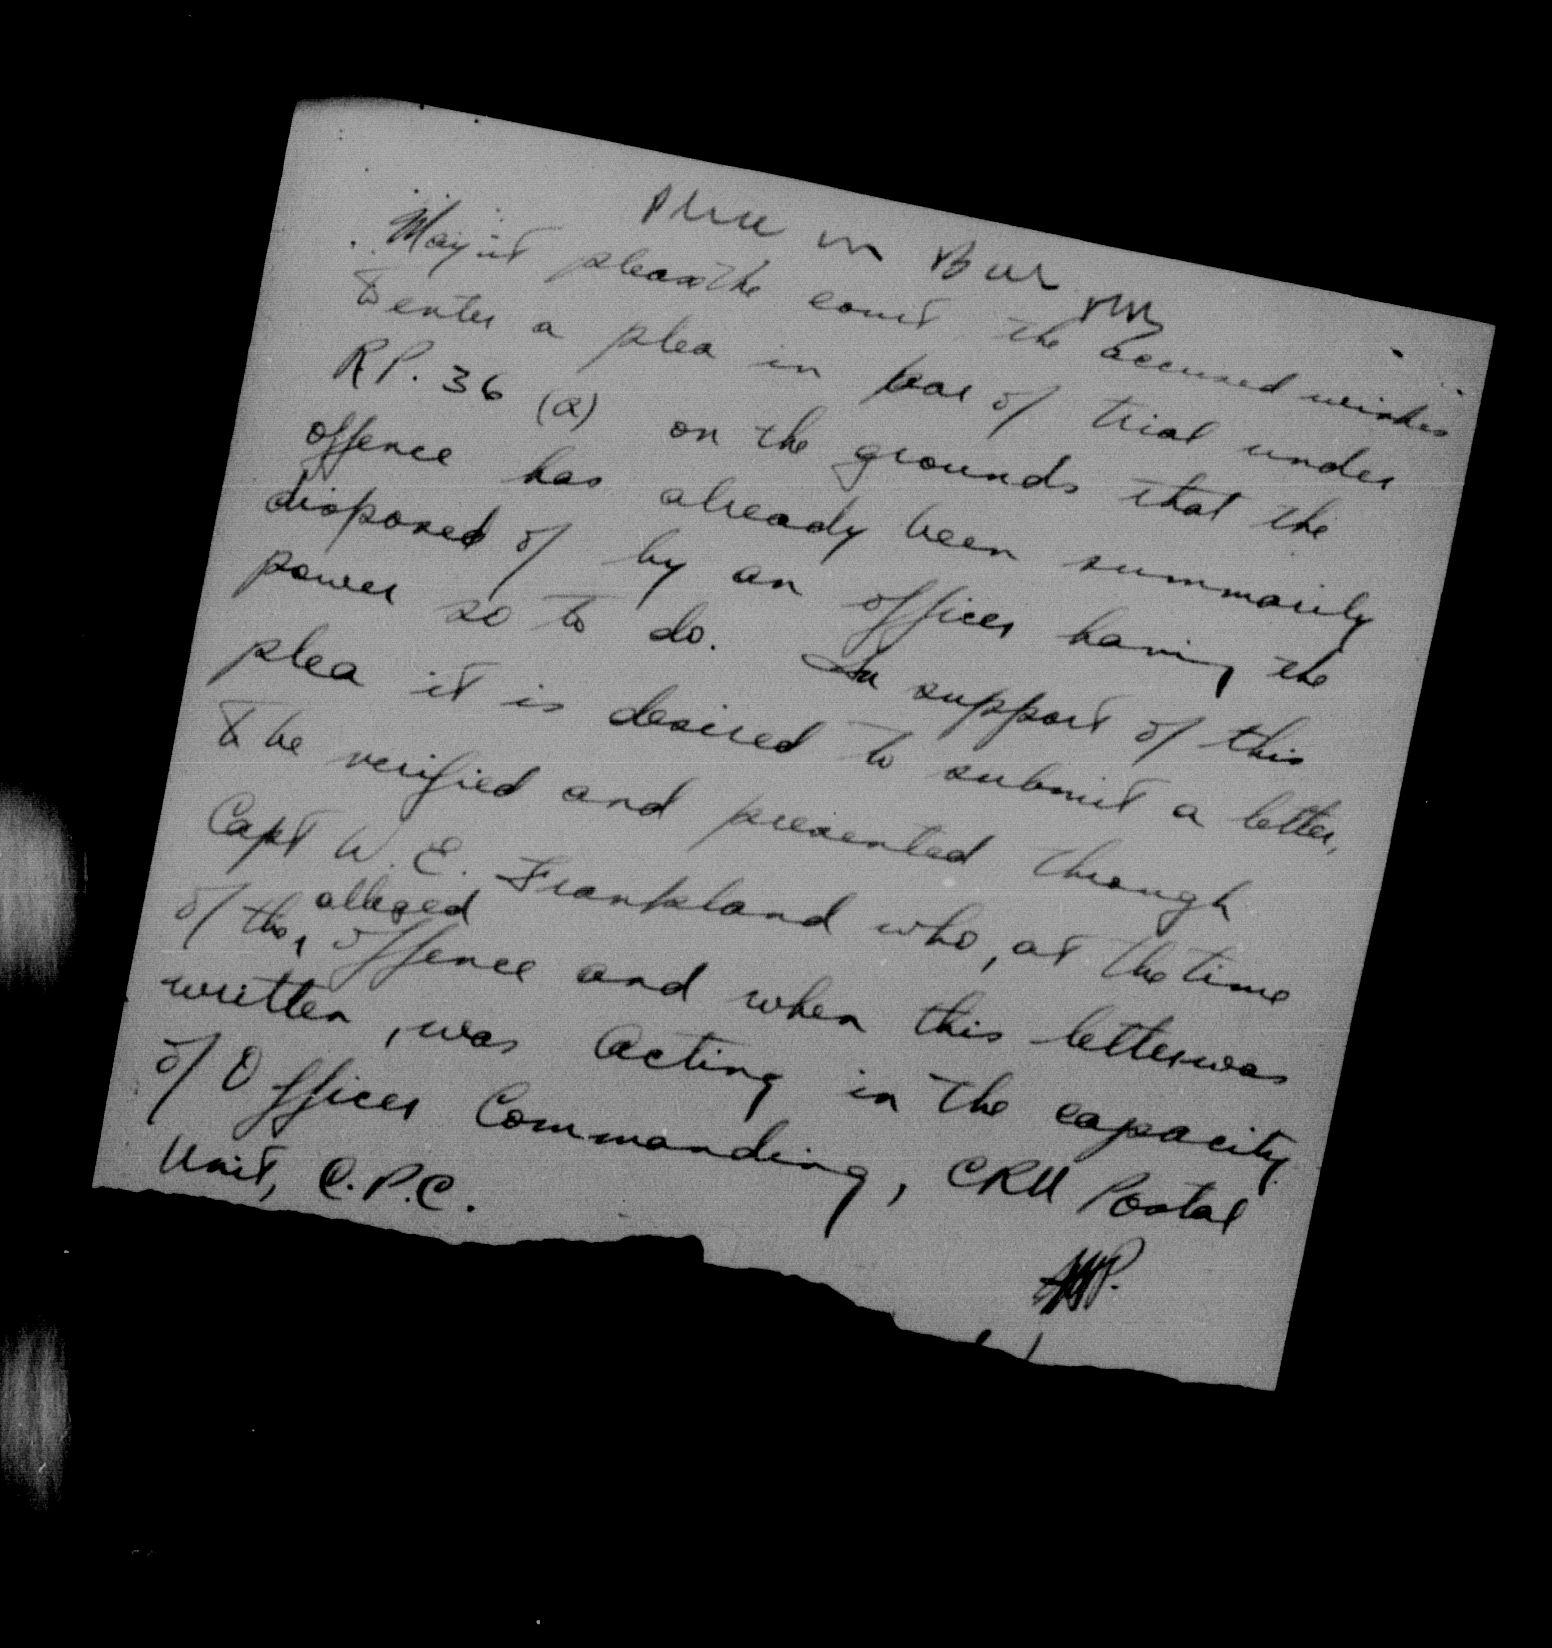 Plea in Bar
May it please the court the accused wishes
to enter a plea in bar of trial under
RP. 36 (a) on the grounds that the
offence has already been summarily
disposed of by an officer having the
power so to do. In support of this
plea it is desired to submit a letter,
to be verified and presented through
Capt W. E. Frankland who, at the time
of the alleged offence and when this letter was
written, was acting in the capacity
of Officer Commanding, CRU Postal
Unit, C.P.C.